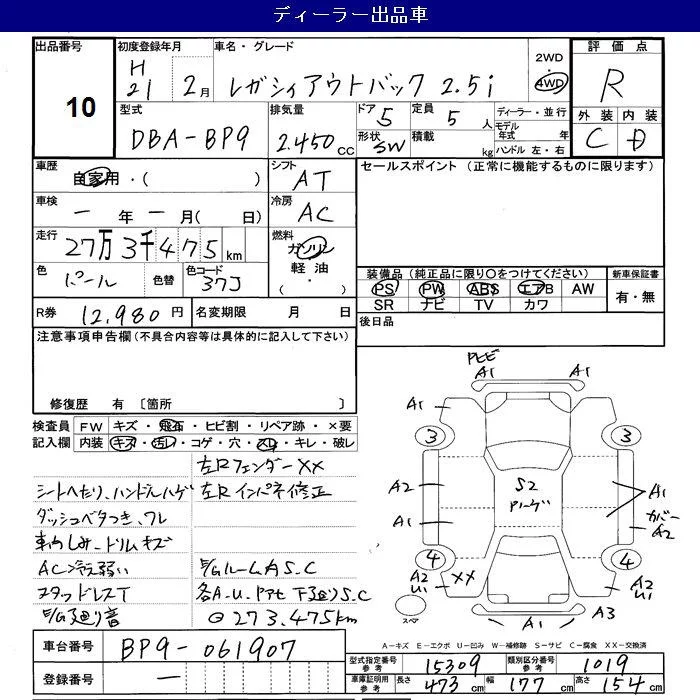 ディーラー出品車
出品番号 10
初度登録年月 H21 2月
車名・グレード レガシィアウトバック 2.5i
2WD・4WD
評価点 R
外装 内装
C D
型式 DBA-BP9
排気量 2.450cc
ドア 5
形状 SW
定員 5人
積載 kg
ディーラー・並行
モデル年式 年
ハンドル 左・右
車歴 自家用・( )
シフト AT
セールスポイント (正常に機能するものに限ります)
車検 一年 一月( 日)
冷房 AC
走行 27万3千475km
燃料 ガソリン 軽油 ( ・ )
色 パール 色替
色コード 37J
装備品 (純正品に限り〇をつけてください)
新車保証書
PS PW ABS エアB AW
有・無
SR ナビ TV カワ
R券 12,980円
名変期限 月 日
後日品
注意事項申告欄 (不具合内容等は具体的に記入して下さい)
修復歴 有 〔箇所 〕
検査員記入欄
FW キズ・飛石・ヒビ割・リペア跡・×要
内装 キズ・汚レ・コゲ・穴・スレ・キレ・破レ
左RフェンダーXX
シートへたり、ハンドルハゲ
左Rインパネ修正
ダッシュベタつき、ワレ
車内しみ、トリムキズ
AC冷え弱い
E/GルームAS.C
スタッドレスT
各A-U. 下廻りS.C
E/G廻り音
⊖273.475km
A1 A1
A1 A1
3 3
A2 S2 A1
カバー A2
A1
4 4
A2 U1 XX
A2 U1
スペア
A1 A3
A－キズ E－エクボ U－凹み W－補修跡 S－サビ C－腐食 XX－交換済
車台番号 BP9-061907
登録番号 一
型式指定番号 参考 15309
類別区分番号 参考 1019
車庫証明用 参考 長さ 473cm 幅 177cm 高さ 154cm